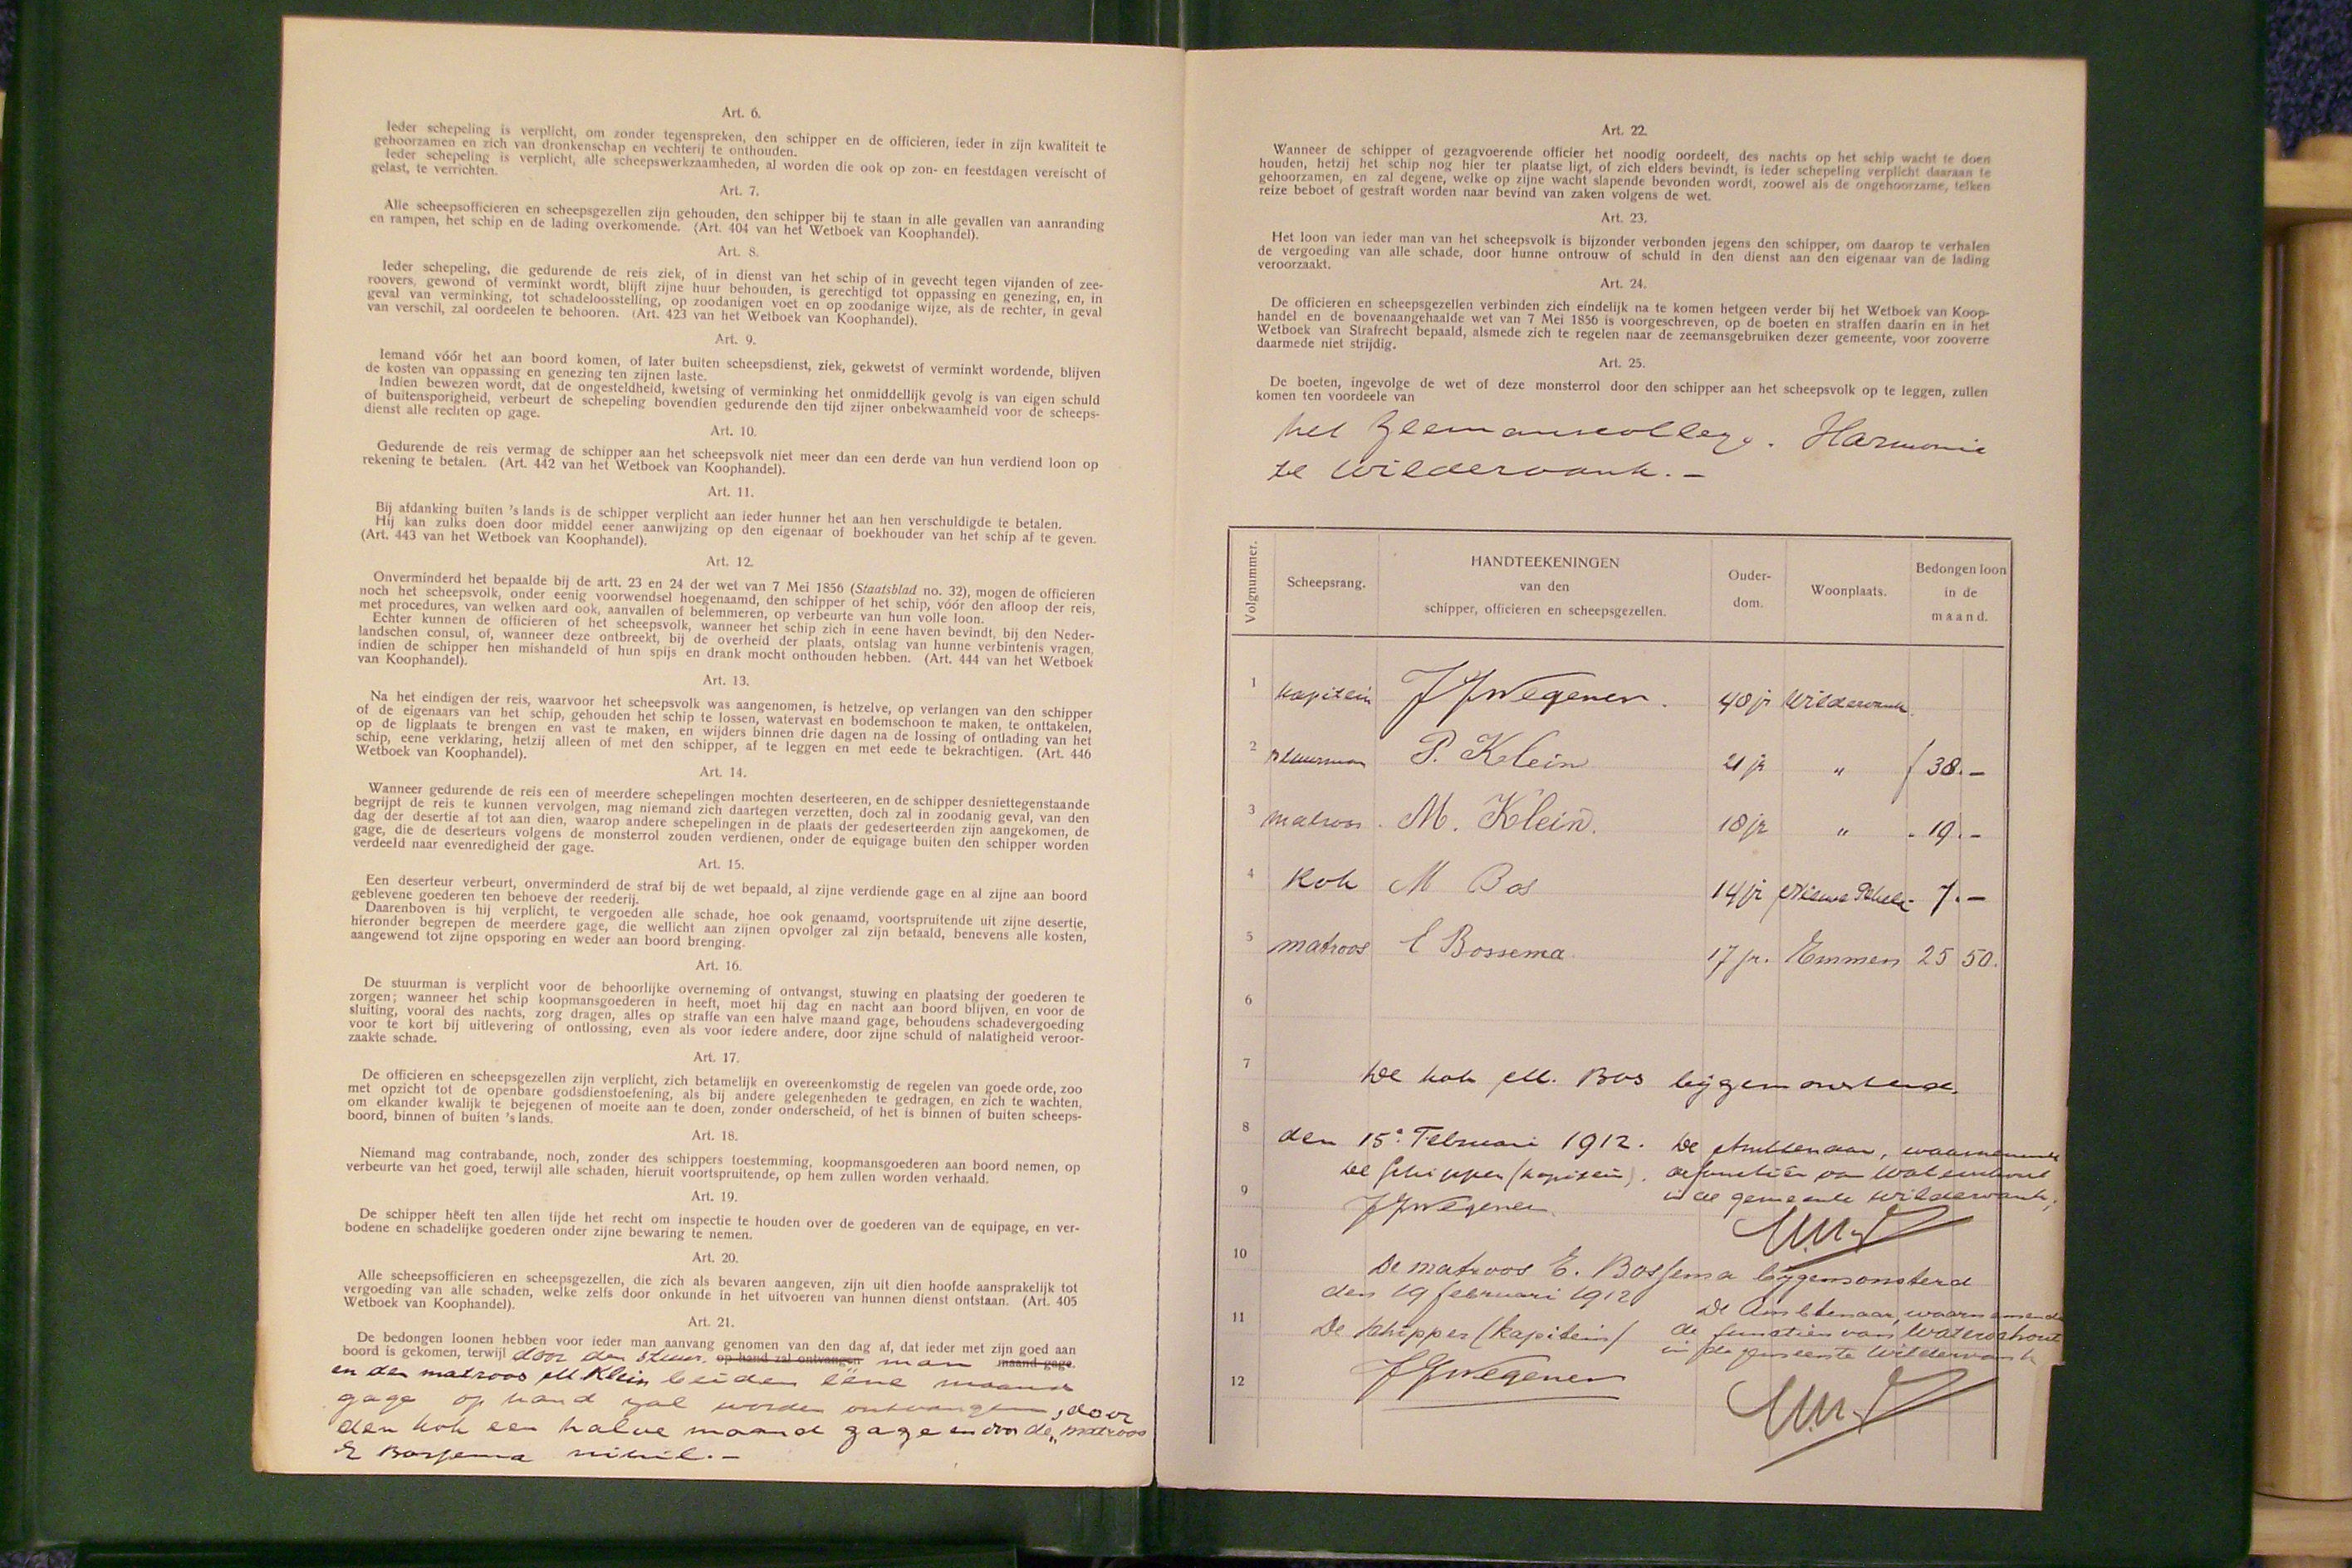 Art. 6.
Ieder schepeling is verplicht, om zonder tegenspreken, den schipper en de officieren, ieder in zijn kwaliteit te
gehoorzamen en zich van dronkenschap en vechterij te onthouden.
Ieder schepeling is verplicht, alle scheepswerkzaamheden, al worden die ook op zon- en feestdagen vereischt of
gelast, te verrichten.
Art. 7.
Alle scheepsofficieren en scheepsgezellen zijn gehouden, den schipper bij te staan in alle gevallen van aanranding
en rampen, het schip en de lading overkomende. (Art. 404 van het Wetboek van Koophandel).
Art. 8.
Ieder schepeling, die gedurende de reis ziek, of in dienst van het schip of in gevecht tegen vijanden of zee-
roovers, gewond of verminkt wordt, blijft zijne huur behouden, is gerechtigd tot oppassing en genezing, en, in
geval van verminking, tot schadeloosstelling, op zoodanigen voet en op zoodanige wijze, als de rechter, in geval
van verschil, zal oordeelen te behooren. (Art. 423 van het Wetboek van Koophandel).
Art. 9.
Iemand vóór het aan boord komen, of later buiten scheepsdienst, ziek, gekwetst of verminkt wordende, blijven
de kosten van oppassing en genezing ten zijnen laste.
Indien bewezen wordt, dat de ongesteldheid, kwetsing of verminking het onmiddellijk gevolg is van eigen schuld
of buitensporigheid, verbeurt de schepeling bovendien gedurende den tijd zijner onbekwaamheid voor de scheeps-
dienst alle rechten op gage.
Art. 10.
Gedurende de reis vermag de schipper aan het scheepsvolk niet meer dan een derde van hun verdiend loon op
rekening te betalen. (Art. 442 van het Wetboek van Koophandel).
Art. 11.
Bij afdanking buiten 's lands is de schipper verplicht aan ieder hunner het aan hen verschuldigde te betalen.
Hij kan zulks doen door middel eener aanwijzing op den eigenaar of boekhouder van het schip af te geven.
(Art. 443 van het Wetboek van Koophandel).
Art. 12.
Onverminderd het bepaalde bij de artt. 23 en 24 der wet van 7 Mei 1856 (Staatsblad no. 32), mogen de officieren
noch het scheepsvolk, onder eenig voorwendsel hoegenaamd, den schipper of het schip, vóór den afloop der reis,
met procedures, van welken aard ook, aanvallen of belemmeren, op verbeurte van hun volle loon.
Echter kunnen de officieren of het scheepsvolk, wanneer het schip zich in eene haven bevindt, bij den Neder-
landschen consul, of, wanneer deze ontbreekt, bij de overheid der plaats, ontslag van hunne verbintenis vragen,
indien de schipper hen mishandeld of hun spijs en drank mocht onthouden hebben. (Art. 444 van het Wetboek
van Koophandel).
Art. 13.
Na het eindigen der reis, waarvoor het scheepsvolk was aangenomen, is hetzelve, op verlangen van den schipper
of de eigenaars van het schip, gehouden het schip te lossen, watervast en bodemschoon te maken, te onttakelen,
op de ligplaats te brengen en vast te maken, en wijders binnen drie dagen na de lossing of ontlading van het
schip, eene verklaring, hetzij alleen of met den schipper, af te leggen en met eede te bekrachtigen. (Art. 446
Wetboek van Koophandel).
Art. 14.
Wanneer gedurende de reis een of meerdere schepelingen mochten deserteeren, en de schipper desniettegenstaande
begrijpt de reis te kunnen vervolgen, mag niemand zich daartegen verzetten, doch zal in zoodanig geval, van den
dag der desertie af tot aan dien, waarop andere schepelingen in de plaats der gedeserteerden zijn aangekomen, de
gage, die de deserteurs volgens de monsterrol zouden verdienen, onder de equigage buiten den schipper worden
verdeeld naar evenredigheid der gage.
Art. 15.
Een deserteur verbeurt, onverminderd de straf bij de wet bepaald, al zijne verdiende gage en al zijne aan boord
geblevene goederen ten behoeve der reederij.
Daarenboven is hij verplicht, te vergoeden alle schade, hoe ook genaamd, voortspruitende uit zijne desertie,
hieronder begrepen de meerdere gage, die wellicht aan zijnen opvolger zal zijn betaald, benevens alle kosten,
aangewend tot zijne opsporing en weder aan boord brenging.
Art. 16.
De stuurman is verplicht voor de behoorlijke overneming of ontvangst, stuwing en plaatsing der goederen te
zorgen; wanneer het schip koopmansgoederen in heeft, moet hij dag en nacht aan boord blijven, en voor de
sluiting, vooral des nachts, zorg dragen, alles op straffe van een halve maand gage, behoudens schadevergoeding
voor te kort bij uitlevering of ontlossing, even als voor iedere andere, door zijne schuld of nalatigheid veroor-
zaakte schade.
Art. 17.
De officieren en scheepsgezellen zijn verplicht, zich betamelijk en overeenkomstig de regelen van goede orde, zoo
met opzicht tot de openbare godsdienstoefening, als bij andere gelegenheden te gedragen, en zich te wachten,
om elkander kwalijk te bejegenen of moeite aan te doen, zonder onderscheid, of het is binnen of buiten scheeps-
boord, binnen of buiten 's lands.
Art. 18.
Niemand mag contrabande, noch, zonder des schippers toestemming, koopmansgoederen aan boord nemen, op
verbeurte van het goed, terwijl alle schaden, hieruit voortspruitende, op hem zullen worden verhaald.
Art. 19.
De schipper heeft ten allen tijde het recht om inspectie te houden over de goederen van de equipage, en ver-
bodene en schadelijke goederen onder zijne bewaring te nemen.
Art. 20.
Alle scheepsofficieren en scheepsgezellen, die zich als bevaren aangeven, zijn uit dien hoofde aansprakelijk tot
vergoeding van alle schaden, welke zelfs door onkunde in het uitvoeren van hunnen dienst ontstaan. (Art. 405
Wetboek van Koophandel).
Art. 21.
De bedongen loonen hebben voor ieder man aanvang genomen van den dag af, dat ieder met zijn goed aan
boord is gekomen, terwijl door den stuur- op hand zal ontvangen man maand gage.
en den matroos M Klein beiden eene maand
gage op hand zal worden ontvangen, door
den kok een halve maand gage en door de „ matroos
E Bossema nihil. –
Art. 22.
Wanneer de schipper of gezagvoerende officier het noodig oordeelt, des nachts op het schip wacht te doen
houden, hetzij het schip nog hier ter plaatse ligt, of zich elders bevindt, is ieder schepeling verplicht daaraan te
gehoorzamen, en zal degene, welke op zijne wacht slapende bevonden wordt, zoowel als de ongehoorzame, telken
reize beboet of gestraft worden naar bevind van zaken volgens de wet.
Art. 23.
Het loon van ieder man van het scheepsvolk is bijzonder verbonden jegens den schipper, om daarop te verhalen
de vergoeding van alle schade, door hunne ontrouw of schuld in den dienst aan den eigenaar van de lading
veroorzaakt.
Art. 24.
De officieren en scheepsgezellen verbinden zich eindelijk na te komen hetgeen verder bij het Wetboek van Koop-
handel en de bovenaangehaalde wet van 7 Mei 1856 is voorgeschreven, op de boeten en straffen daarin en in het
Wetboek van Strafrecht bepaald, alsmede zich te regelen naar de zeemansgebruiken dezer gemeente, voor zooverre
daarmede niet strijdig.
Art. 25.
De boeten, ingevolge de wet of deze monsterrol door den schipper aan het scheepsvolk op te leggen, zullen
komen ten voordeele van
het Zeemanscollege. Harmonie
te Wildervank. –
Volgnummer. Scheepsrang. HANDTEEKENINGEN van den schipper, officieren en scheepsgezellen. Ouder-dom. Woonplaats. Bedongen loon in de maand.
1 kapitein JJWegener. 48 jr Wildervank.
2 stuurman P. Klein 21 jr „ f 38.–
3 matroos. M. Klein. 18 jr „ - 19.–
4 Kok M Bos 14 jr Nieuwe Pekela - 7.–
5 matroos E Bossema 17 jr. Emmen 25 50.
6
7 De kok M. Bos bijgemonsterd.
8 den 15e Februari 1912. De Ambtenaar, waarnemende
De schipper (kapitein). de functiën van Waterschout
9 in de gemeente Wildervank,
JJWegener.
10 De matroos E. Bossema bijgemonsterd
den 19 februari 1912
De Ambtenaar, waarnemende
11 De schipper (kapitein) de functiën van Waterschout
in de gemeente Wildervank
12 JJWegener